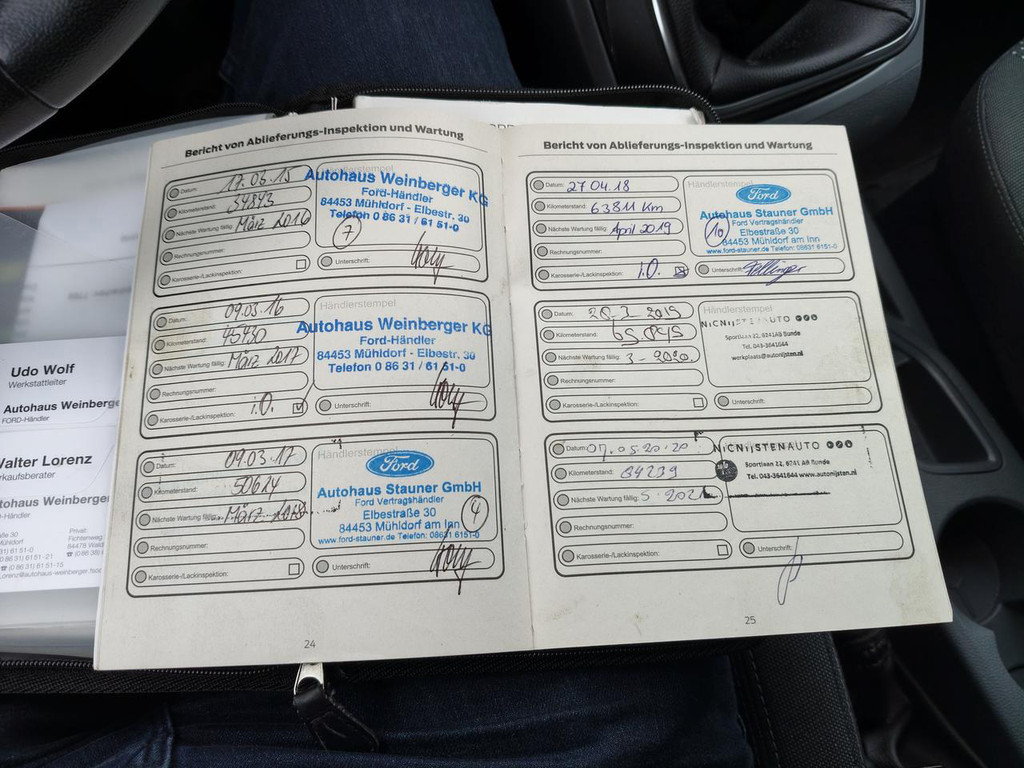 Udo Wolf
Werkstattleiter
Autohaus Weinberge
FORD-Händler
Walter Lorenz
rkaufsberater
tohaus Weinberger
Händler
Privat:
Fichtenweg
Bericht von Ablieferungs-Inspektion und Wartung
Datum: 17.03.15
Kilometerstand: 34843
Nächste Wartung fällig: März 2016
Rechnungsnummer:
Karosserie-/Lackinspektion:
Händlerstempel
Autohaus Weinberger KG
Ford-Händler
84453 Mühldorf - Elbestr. 30
Telefon 0 86 31 / 61 51-0
7
Unterschrift:
Datum: 09.03.16
Kilometerstand: 45430
Nächste Wartung fällig: März 2017
Rechnungsnummer:
Karosserie-/Lackinspektion: i.O.
Händlerstempel
Autohaus Weinberger KG
Ford-Händler
84453 Mühldorf - Elbestr. 30
Telefon 0 86 31 / 61 51-0
Unterschrift:
Datum: 09.03.17
Kilometerstand: 50624
Nächste Wartung fällig: März 2018
Rechnungsnummer:
Karosserie-/Lackinspektion:
Händlerstempel
Ford
Autohaus Stauner GmbH
Ford Vertragshändler
Elbestraße 30
84453 Mühldorf am Inn
www.ford-stauner.de Telefon: 08631 6151-0
4
Unterschrift:
24
Bericht von Ablieferungs-Inspektion und Wartung
Datum: 27.04.18
Kilometerstand: 63811 Km
Nächste Wartung fällig: April 2019
Rechnungsnummer:
Karosserie-/Lackinspektion: i.O.
Händlerstempel
Ford
Autohaus Stauner GmbH
Ford Vertragshändler
Elbestraße 30
84453 Mühldorf am Inn
www.ford-stauner.de Telefon: 08631 6151-0
10
Unterschrift:
Datum: 28-3-2019
Kilometerstand: 65.845
Nächste Wartung fällig: 3-2020.
Rechnungsnummer:
Karosserie-/Lackinspektion:
Händlerstempel
NICNIJSTENAUTO
Sportlaan 22, 6241AB Bunde
Tel. 043-3641644
werkplaats@autonijsten.nl
Unterschrift:
Datum: 07.05.2020
Kilometerstand: 84239
Nächste Wartung fällig: 5-2021
Rechnungsnummer:
Karosserie-/Lackinspektion:
NICNIJSTENAUTO
Sportlaan 22, 6241 AB Bunde
Tel. 043-3641644 www.autonijsten.nl
Unterschrift:
25